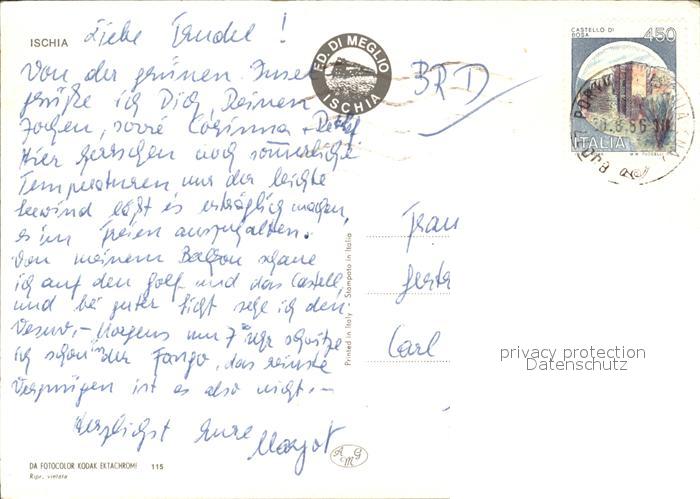 ISCHIA
Liebe Trudel !
Von der grünen Insel
grüße ich Dich, Deinen
Jochen, sowie Corinna + Detlef
Hier herrschen noch sommerliche
Temperaturen nur der leichte
Seewind läßt es erträglich machen,
es im Freien auszuhalten.
Von meinem Balkon schaue
ich auf den Golf und das Castell
und bei guter Sicht sehe ich den
Vesuv. – Morgens um 7 Uhr schwitze
ich schon im Fango, das reinste
Vergnügen ist es also nicht. –
Herzlichst Eure
Margot
ED. DI MEGLIO
ISCHIA
BRD
CASTELLO DI
ROSA
450
ITALIA
Frau
Carl
Printed in Italy - Stampato in Italia
privacy protection
Datenschutz
DA FOTOCOLOR KODAK EKTACHROME 115
Ripr. vietata
A G
M